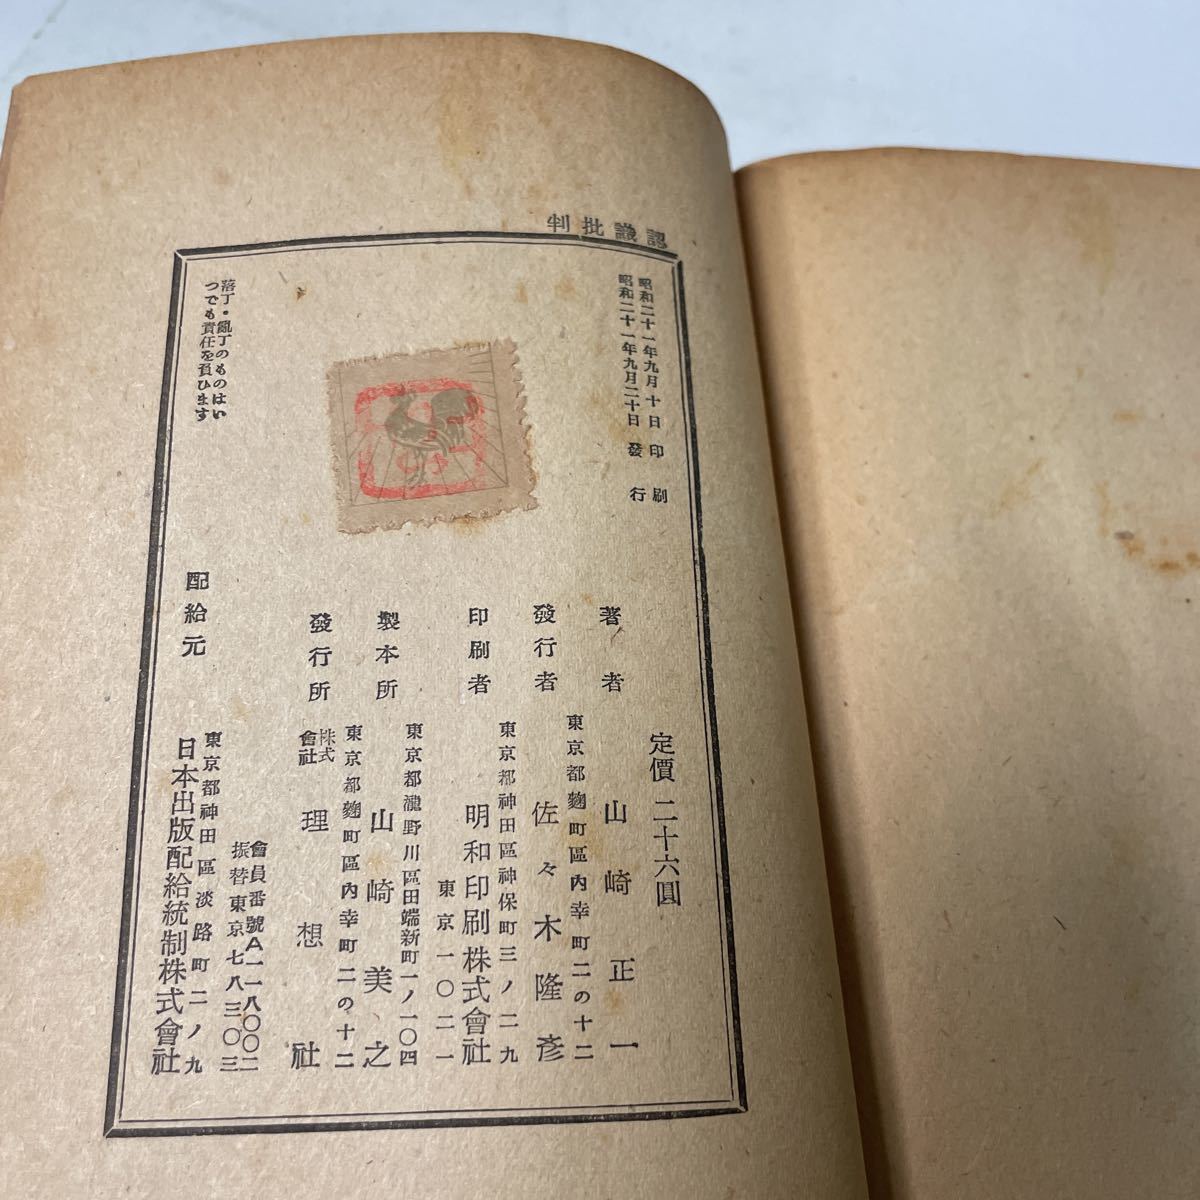 認識批判
昭和二十一年九月十日 印刷
昭和二十一年九月二十日 發行
定價 二十六圓
著者 山崎正一
東京都麴町區內幸町二の十二
發行者 佐々木隆彥
東京都神田區神保町三ノ二九
印刷者 明和印刷株式會社
東京一〇二一
東京都瀧野川區田端新町一ノ一〇四
製本所 山崎美之
東京都麴町區內幸町二の十二
發行所 株式會社 理想社
會員番號A一一八〇〇二
振替東京七八三〇三
東京都神田區淡路町二ノ九
配給元 日本出版配給統制株式會社
落丁・亂丁のものはい
つでも責任を負ひます